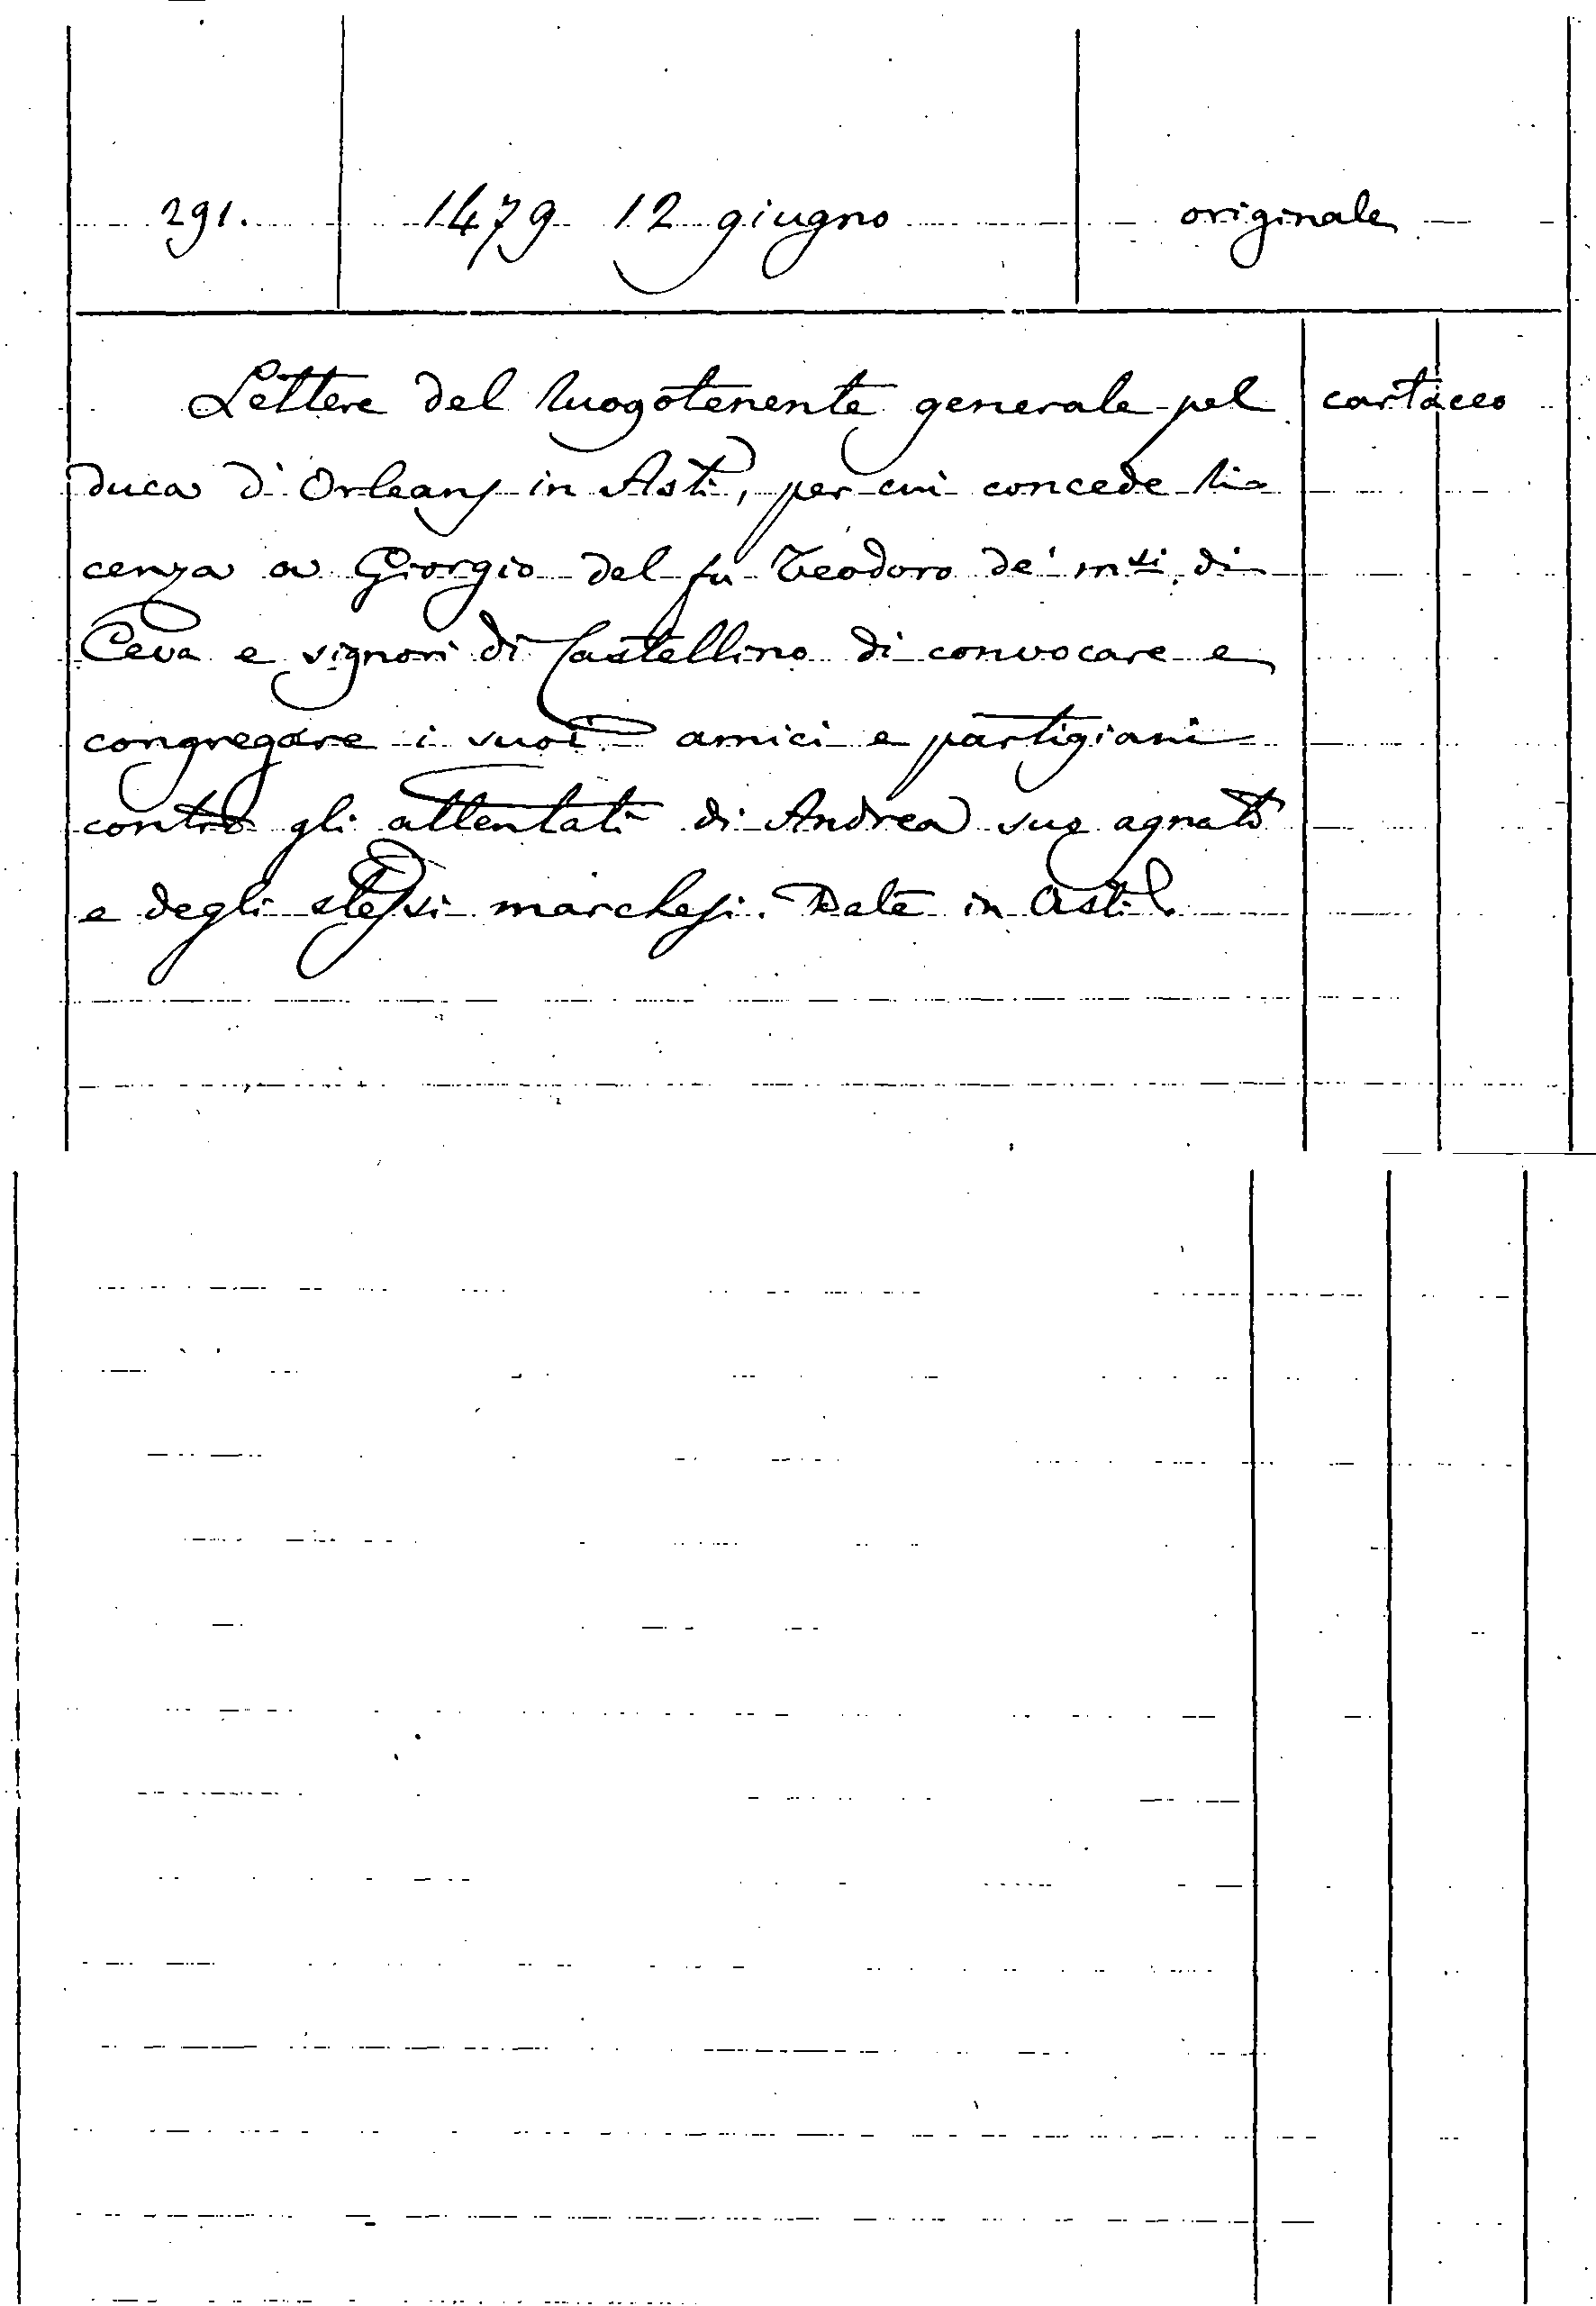 291. 1479 12 giugno originale
Lettere del luogotenente generale pel cartaceo
duca d'Orleans in Asti, per cui concede li=
cenza a Giorgio del fu Teodoro de' m.si di
Ceva e signori di Castellino di convocare e
congregare i suoi amici e partigiani
contro gli attentati di Andrea suo agnato
e degli stessi marchesi. Date in Asti.